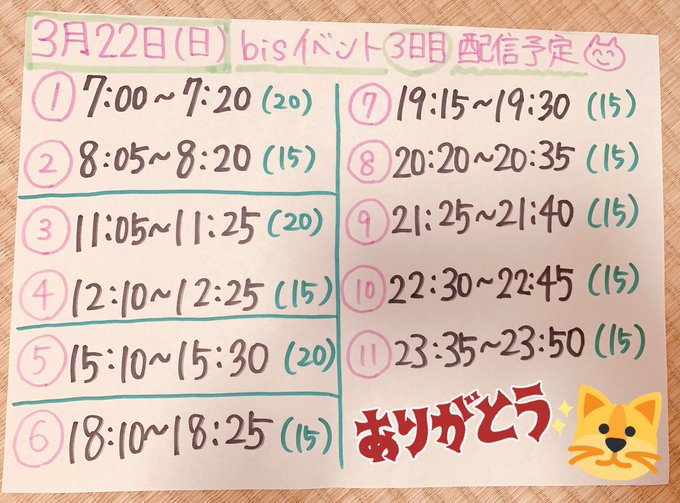 3月22日(日) bisイベント 3日目 配信予定
① 7:00~7:20 (20)
② 8:05~8:20 (15)
③ 11:05~11:25 (20)
④ 12:10~12:25 (15)
⑤ 15:10~15:30 (20)
⑥ 18:10~18:25 (15)
⑦ 19:15~19:30 (15)
⑧ 20:20~20:35 (15)
⑨ 21:25~21:40 (15)
⑩ 22:30~22:45 (15)
⑪ 23:35~23:50 (15)
ありがとう